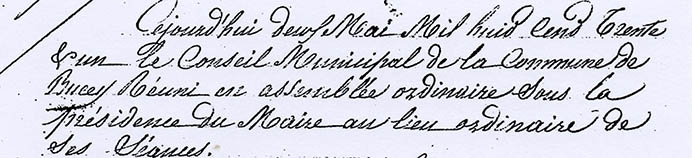 Cejourd'hui deux Mai Mil huid Cend Trente
& un le Conseil Municipal de la Commune de
Bucey Réuni en assemblée ordinaire sous la
présidence du Maire au lieu ordinaire de
ses séances.